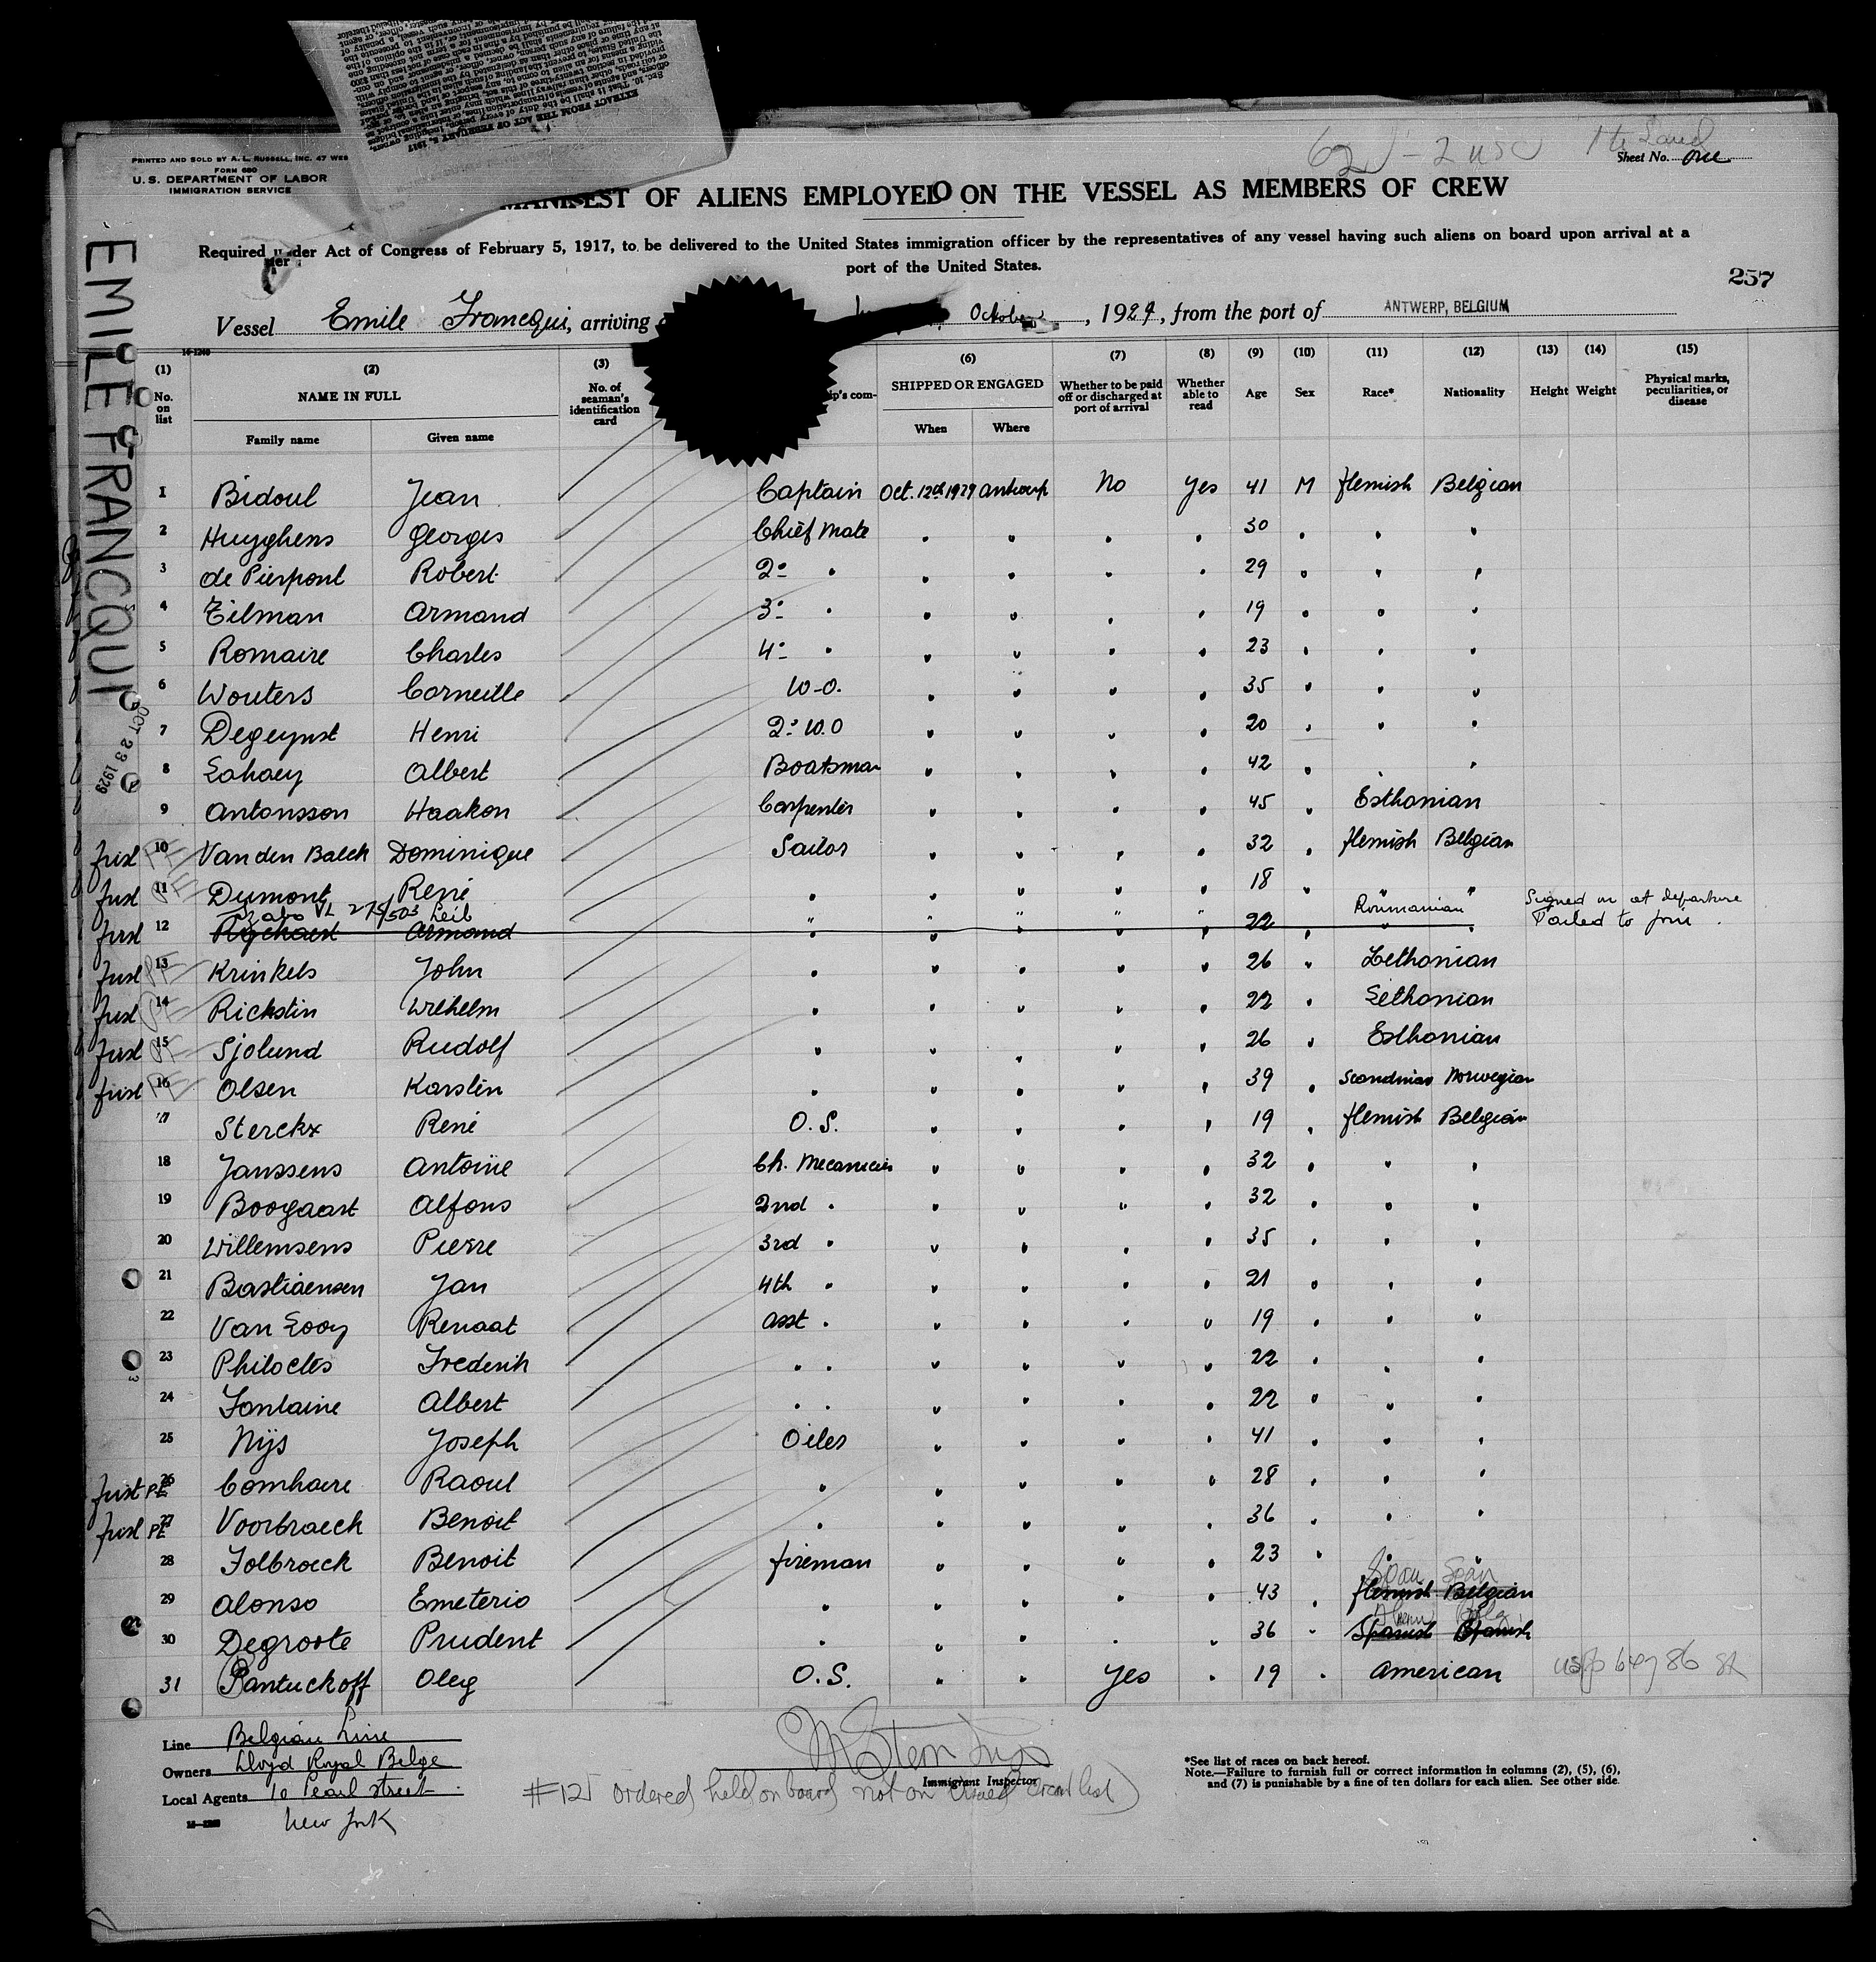 EXTRACT FROM THE ACT OF FEBRUARY 5, 1917
PRINTED AND SOLD BY A. L. RUSSELL, INC. 47 WES
FORM 680
U. S. DEPARTMENT OF LABOR
IMMIGRATION SERVICE
Sheet No. one
MANIFEST OF ALIENS EMPLOYED ON THE VESSEL AS MEMBERS OF CREW
Required under Act of Congress of February 5, 1917, to be delivered to the United States immigration officer by the representatives of any vessel having such aliens on board upon arrival at a
port of the United States.
257
EMILE FRANCQUI
OCT 23 1929
Vessel Emile Francqui, arriving October, 1929, from the port of ANTWERP, BELGIUM
(1) (2) (3) (6) (7) (8) (9) (10) (11) (12) (13) (14) (15)
No. on list NAME IN FULL No. of seaman's identification card ip's com- SHIPPED OR ENGAGED Whether to be paid off or discharged at port of arrival Whether able to read Age Sex Race* Nationality Height Weight Physical marks, peculiarities, or disease
Family name Given name When Where
1 Bidoul Jean Captain Oct. 12th 1929 Antwerp No Yes 41 M flemish Belgian
2 Huyghens Georges Chief Mate 30
3 de Pierpont Robert 2° 29
4 Tilman Armand 3° 19
5 Romaire Charles 4° 23
6 Wouters Corneille W-O. 35
7 Degeynst Henri 2° W.O 20
8 Lahaey Albert Boatsman 42
9 Antonsson Haakon Carpenter 45 Esthonian
first 10 PE Van den Balck Dominique Sailor 32 flemish Belgian
first 11 PE Dumont René 18
275/503 Leib Roumanian Signed on at departure
first 12 Rychaert Armand 22 Failed to join.
first 13 PE Krinkels John 26 Lethonian
first 14 PE Rickstin Wilhelm 22 Lethonian
first 15 PE Sjolund Rudolf 26 Esthonian
first 16 PE Olsen Karslin 39 Scandinav Norwegian
17 Sterckx René O.S. 19 flemish Belgian
18 Janssens Antoine Ch. Mecanicien 32
19 Boogaart Alfons 2nd 32
20 Willemsens Pierre 3rd 35
21 Bastiaensen Jan 4th 21
22 Van Looy Renaat asst. 19
23 Philoctes Frederik 22
24 Fontaine Albert 22
25 Nijs Joseph Oiler 41
first PE 26 Comhaire Raoul 28
first PE 27 Voorbraeck Benoit 36
28 Folbroeck Benoit fireman 23
Span Span
29 Alonso Emeterio 43 flemish Belgian
Flem Belg
30 Degroote Prudent 36 Spanish Spanish
31 Pantuckoff Oleg O.S. Yes 19 American
Line Belgian Line
Owners Lloyd Royal Belge
Local Agents 10 Pearl Street
New York
Immigrant Inspector
#12 ordered held on board not on visaed crew list
*See list of races on back hereof.
Note.—Failure to furnish full or correct information in columns (2), (5), (6),
and (7) is punishable by a fine of ten dollars for each alien. See other side.